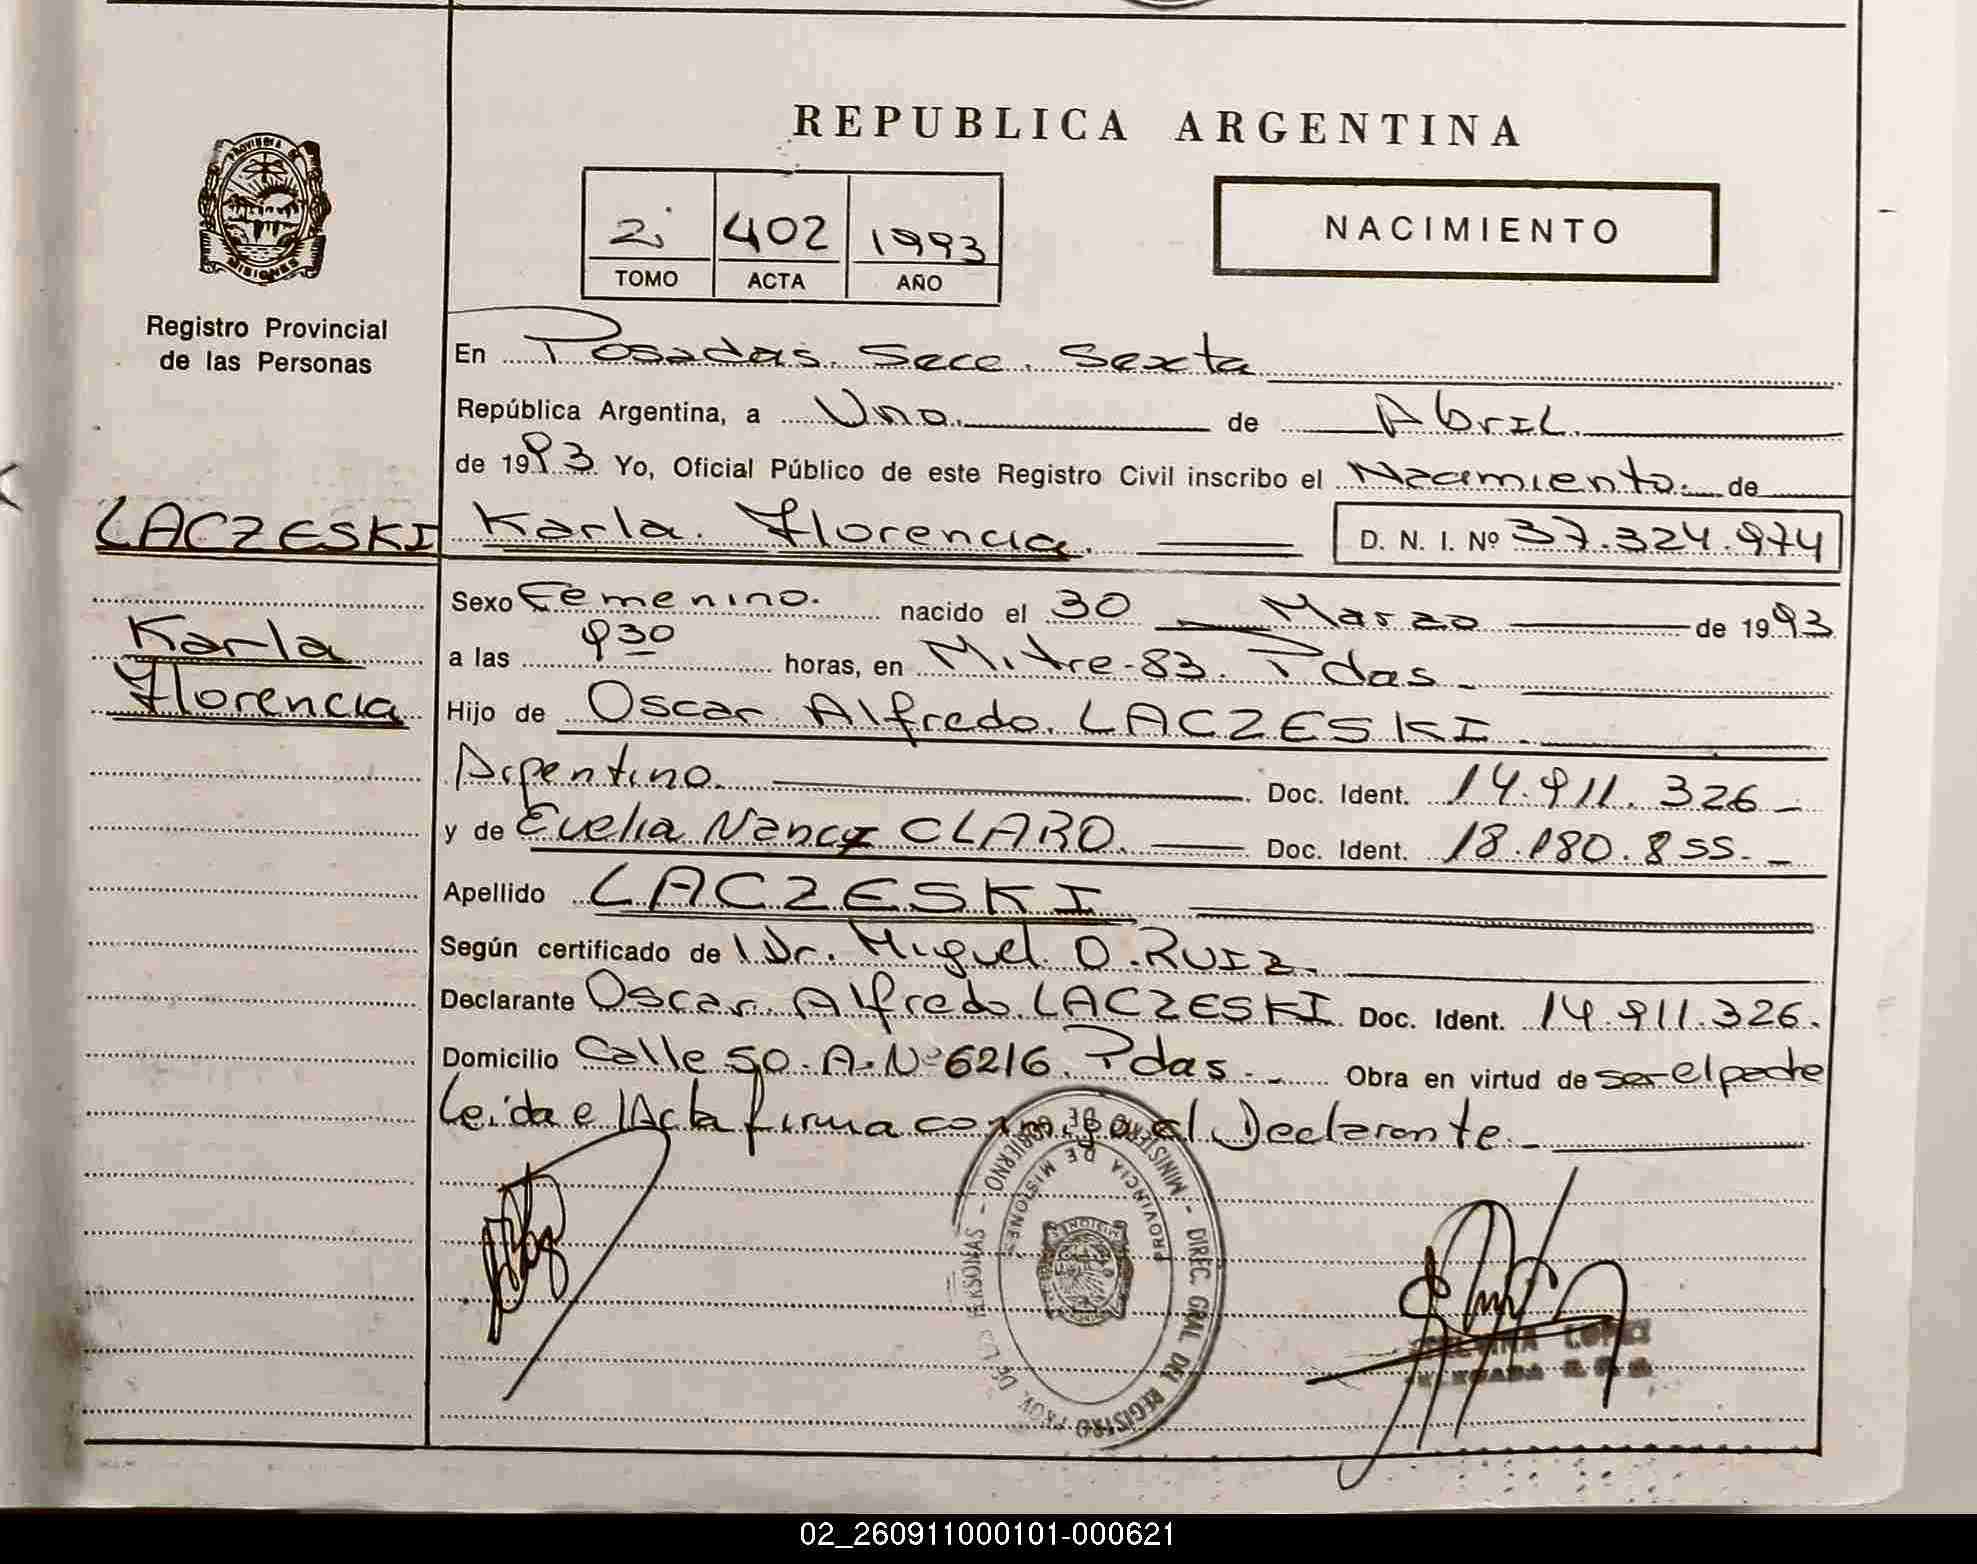 REPUBLICA ARGENTINA
PROVINCIA DE
MISIONES
Registro Provincial
de las Personas
2
402
1993
TOMO
ACTA
AÑO
NACIMIENTO
En Posadas. Secc. Sexta
República Argentina, a Uno. de Abril.
de 1993. Yo, Oficial Público de este Registro Civil inscribo el Nacimiento. de
LACZESKI
Karla. Florencia. D. N. I. Nº 37.324.974
Karla
Florencia
Sexo Femenino. nacido el 30 Marzo de 1993
a las 930 horas, en Mitre-83. Pdas.
Hijo de Oscar Alfredo. LACZESKI.
Argentino. Doc. Ident. 14.911.326_
y de Evelia Nancy CLARO. Doc. Ident. 18.180.855._
Apellido LACZESKI
Según certificado de Dr. Miguel O. RUIZ.
Declarante Oscar. Alfredo. LACZESKI. Doc. Ident. 14.911.326.
Domicilio Calle 50. A. Nº 6216. Pdas._ Obra en virtud de ser el padre
Leida el Acta firma conmigo el Declarante_
MINISTERIO DE GOBIERNO - DIREC. GRAL. DEL REGISTRO PROV. DE LAS PERSONAS -
PROVINCIA DE MISIONES
LOPEZ
02_260911000101-000621